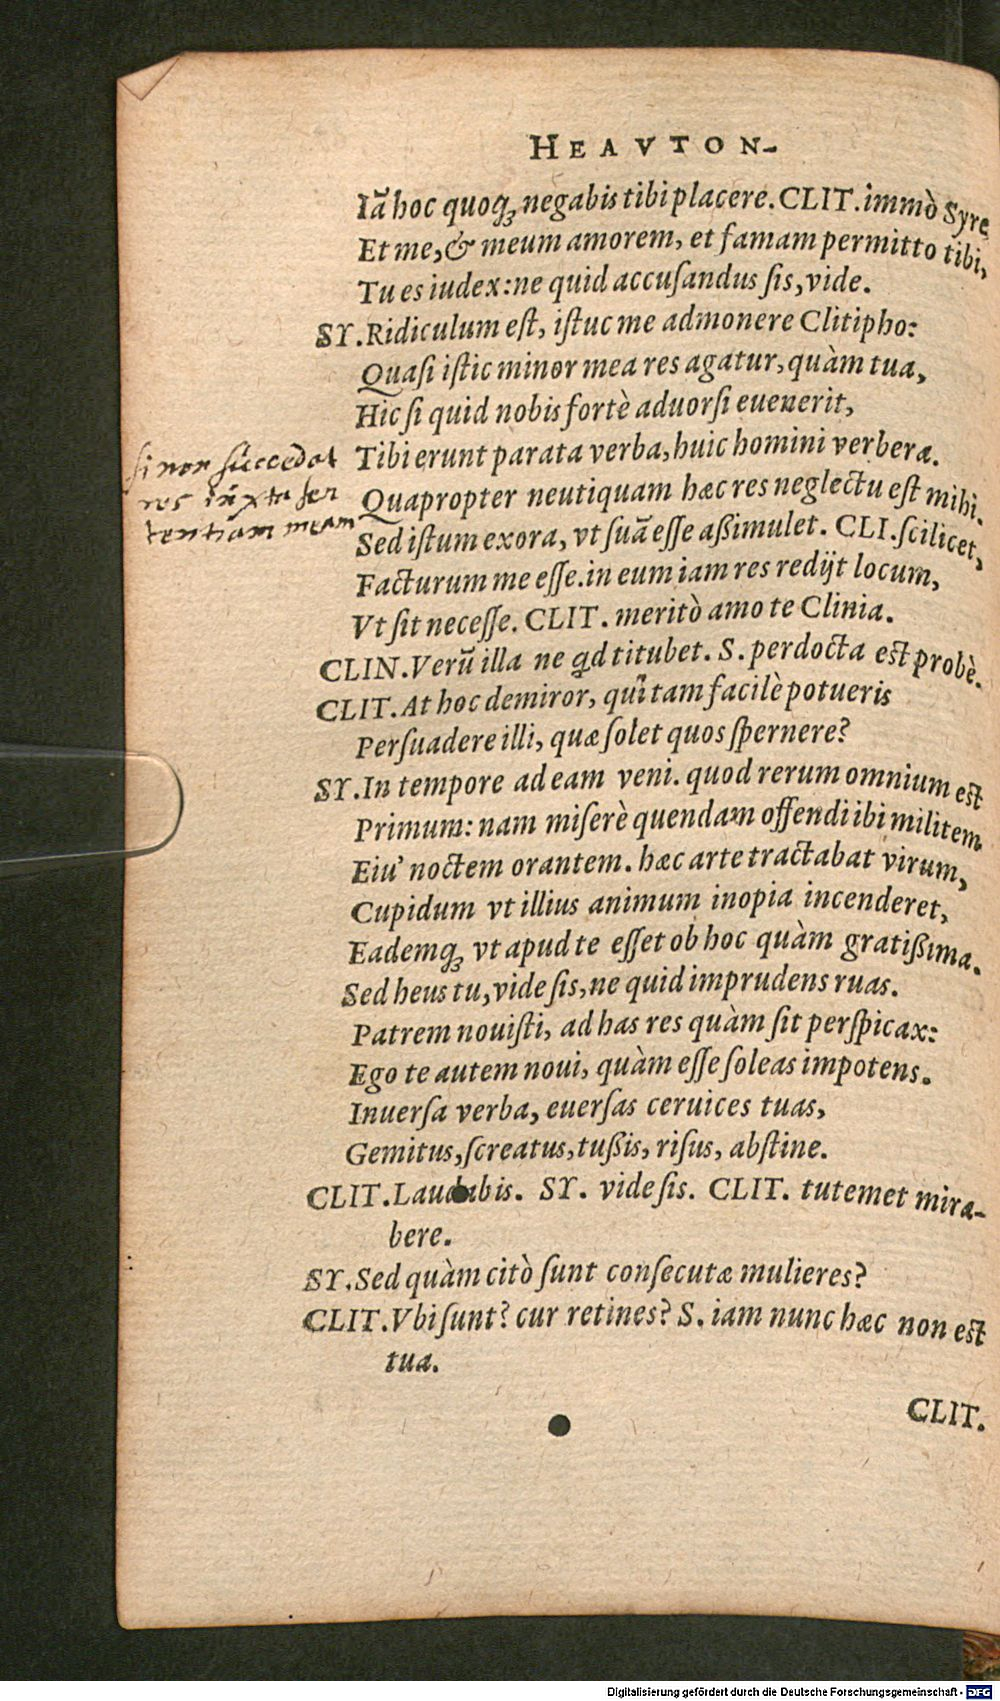 HEAVTON-
Iā hoc quoq; negabis tibi placere. CLIT. immò Syre
Et me, & meum amorem, et famam permitto tibi,
Tu es iudex: ne quid accuſandus ſis, vide.
SY. Ridiculum eſt, iſtuc me admonere Clitipho:
Quaſi iſtic minor mea res agatur, quàm tua,
Hic ſi quid nobis fortè aduorſi euenerit,
Tibi erunt parata verba, huic homini verbera.
Quapropter neutiquam hæc res neglectu eſt mihi.
si non succedat
res iuxta sen
tentiam meam
Sed iſtum exora, vt ſuā eſſe aßimulet. CLI. ſcilicet,
Facturum me eſſe. in eum iam res redijt locum,
Vt ſit neceſſe. CLIT. meritò amo te Clinia.
CLIN. Verū illa ne qd titubet. S. perdocta eſt probè.
CLIT. At hoc demiror, quî tam facilè potueris
Perſuadere illi, quæ ſolet quos ſpernere?
SY. In tempore ad eam veni. quod rerum omnium eſt
Primum: nam miſerè quendam offendi ibi militem
Eiu' noctem orantem. hæc arte tractabat virum,
Cupidum vt illius animum inopia incenderet,
Eademq; vt apud te eſſet ob hoc quàm gratißima.
Sed heus tu, vide ſis, ne quid imprudens ruas.
Patrem nouiſti, ad has res quàm ſit perſpicax:
Ego te autem noui, quàm eſſe ſoleas impotens.
Inuerſa verba, euerſas ceruices tuas,
Gemitus, ſcreatus, tußis, riſus, abſtine.
CLIT. Laudabis. SY. vide ſis. CLIT. tutemet mira-
bere.
SY. Sed quàm citò ſunt conſecutæ mulieres?
CLIT. Vbi ſunt? cur retines? S. iam nunc hæc non eſt
tua.
CLIT.
Digitalisierung gefördert durch die Deutsche Forschungsgemeinschaft - DFG